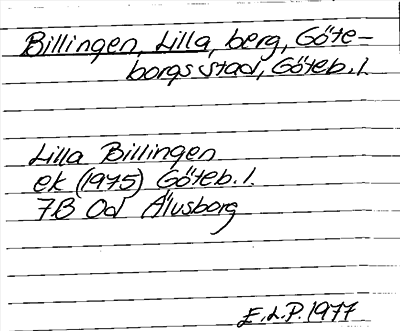 Billingen, Lilla, berg, Göte-
borgs stad, Göteb. l.
Lilla Billingen
ek (1975) Göteb. l.
7B Od Älvsborg
E.L.P. 1977